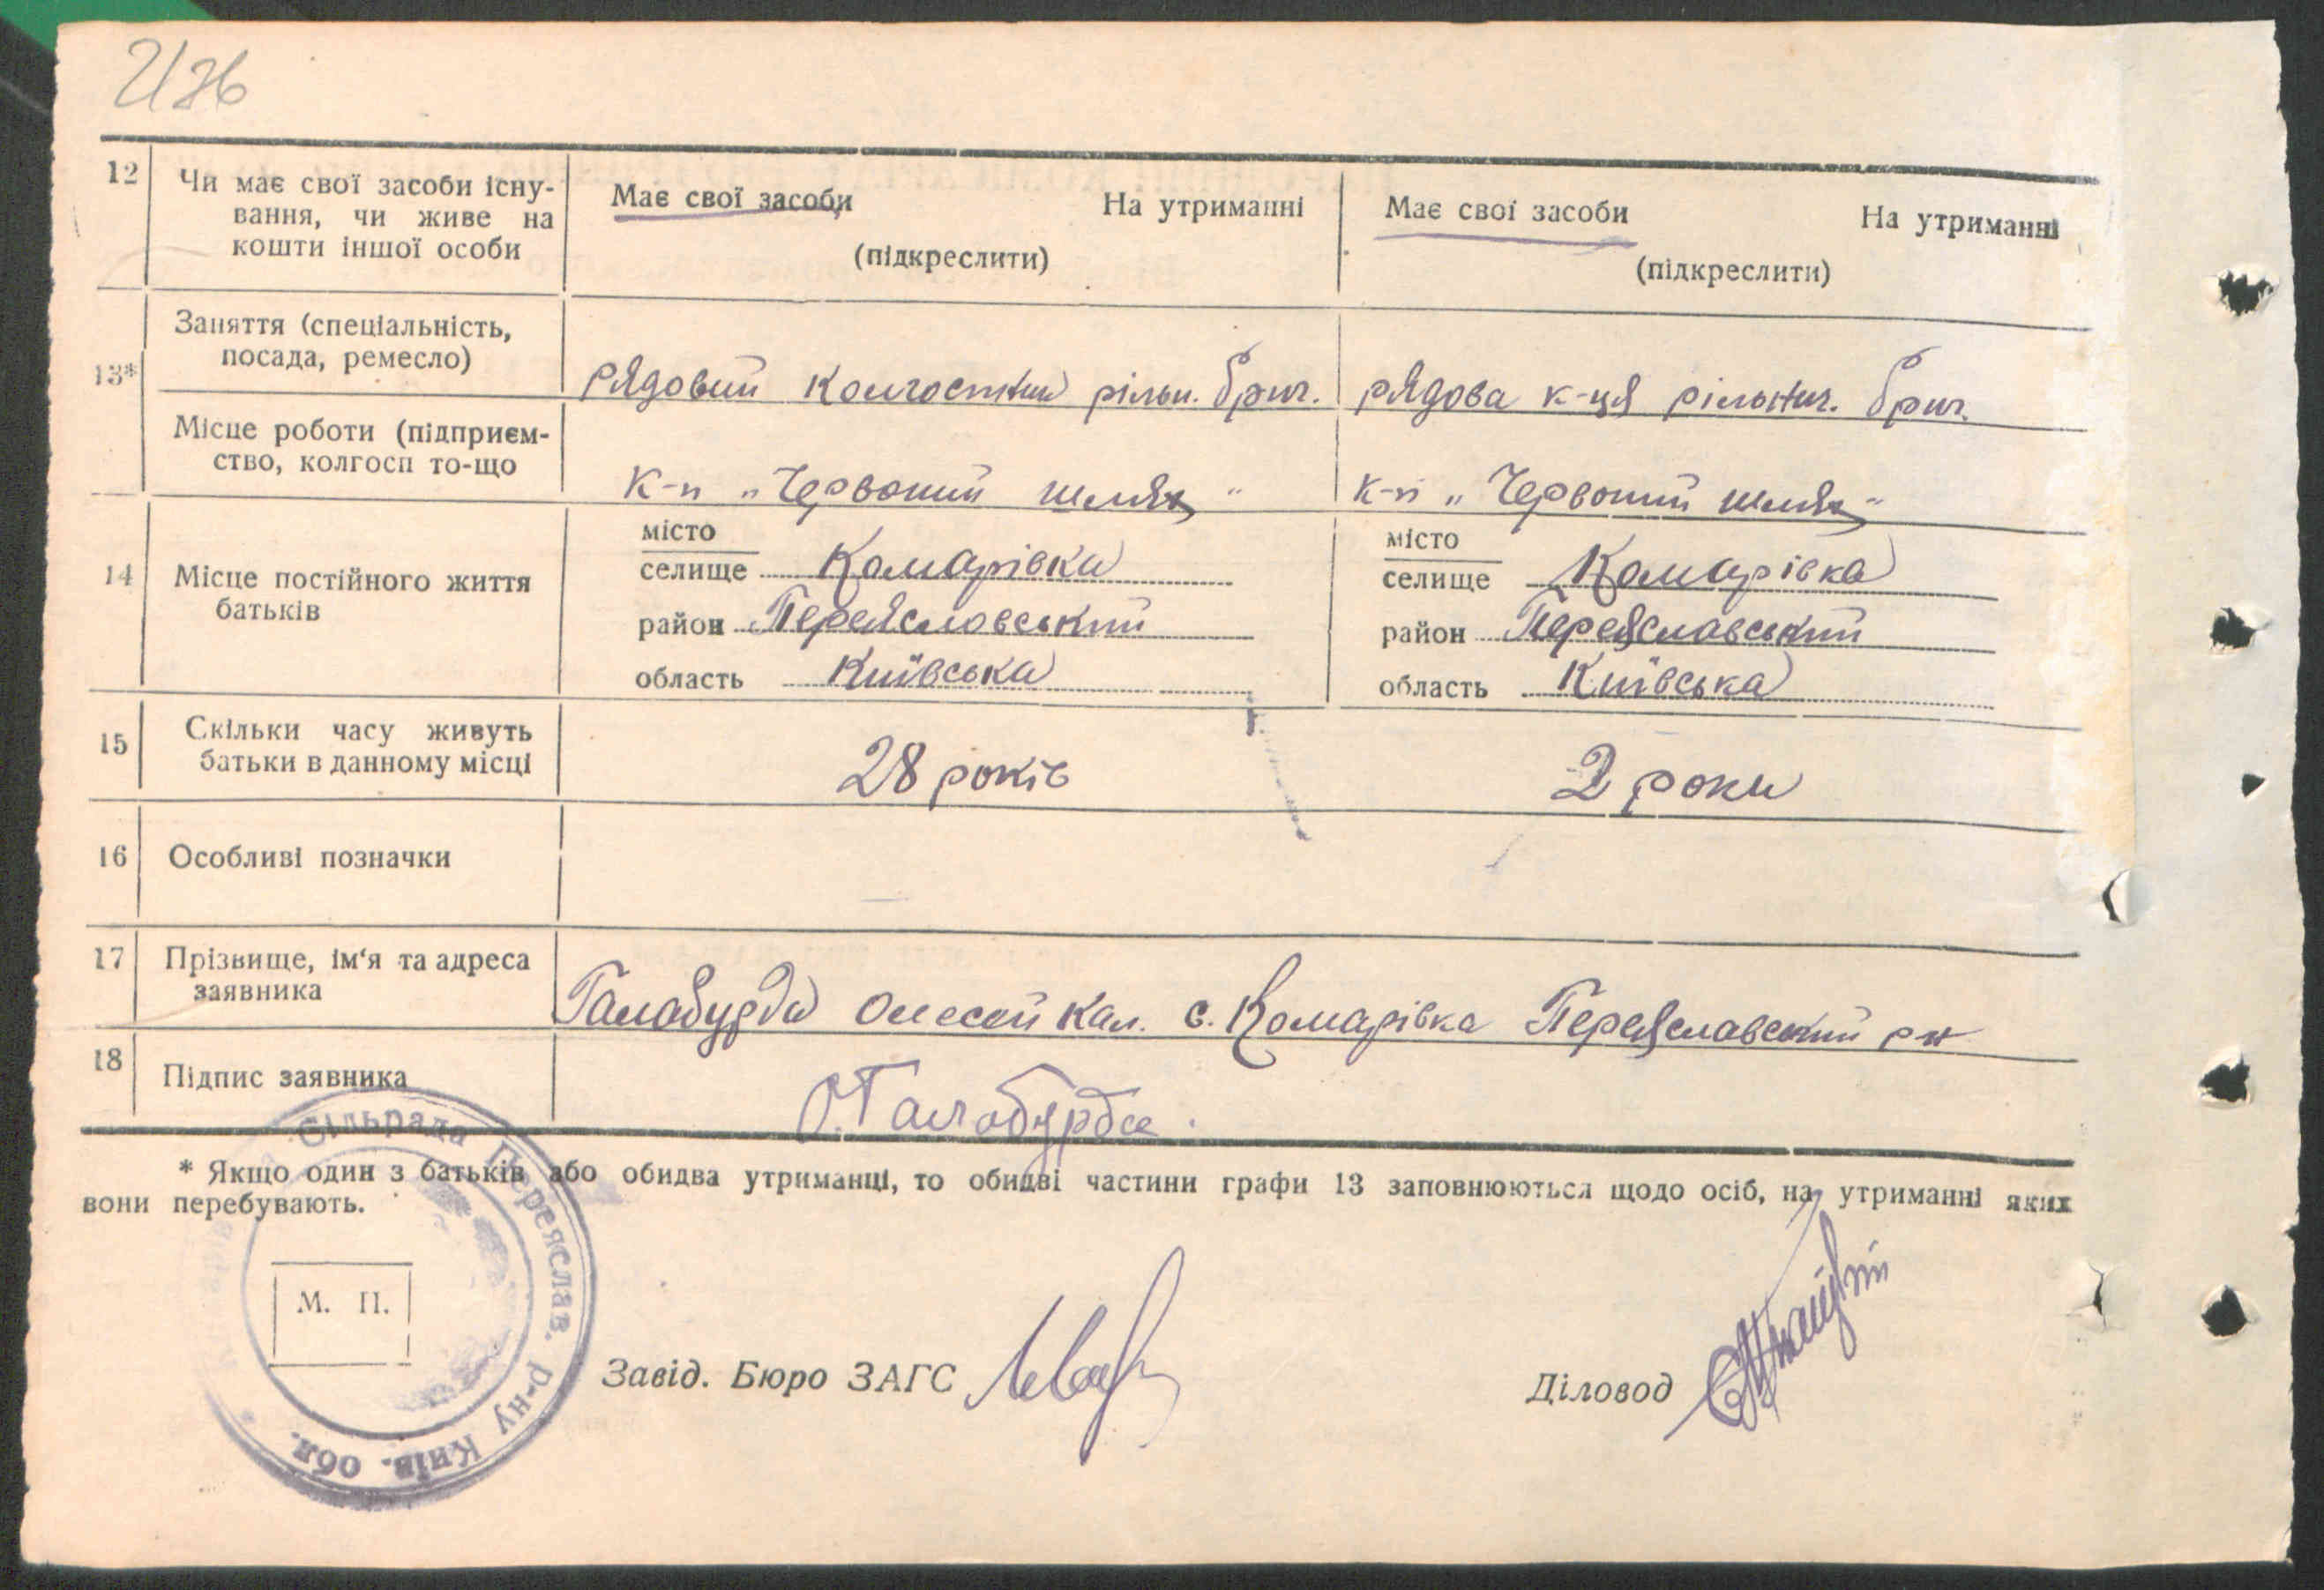 2136
12 Чи має свої засоби існу-
вання, чи живе на
кошти іншої особи
Має свої засоби На утриманні
(підкреслити)
Має свої засоби На утриманні
(підкреслити)
13*
Заняття (спеціальність,
посада, ремесло)
рядовий колгоспник рільн. бриг.
рядова к-ця рільнич. бриг.
Місце роботи (підприєм-
ство, колгосп то-що
к-п „Червоний шлях"
к-п „Червоний шлях"
14 Місце постійного життя
батьків
місто
селище Комарівка
район Переясловський
область Київська
місто
селище Комарівка
район Переяславський
область Київська
15 Скільки часу живуть
батьки в данному місці
28 років
2 роки
16 Особливі позначки
17 Прізвище, ім'я та адреса
заявника
Галабурда Олесей Кал. с. Комарівка Переяславский р-н
18 Підпис заявника
О. Галабурда.
* Якщо один з батьків або обидва утриманці, то обидві частини графи 13 заповнюються щодо осіб, на утриманні яких
вони перебувають.
Сільрада Переяслав. р-ну Київ. обл.
М. П.
Завід. Бюро ЗАГС
Діловод